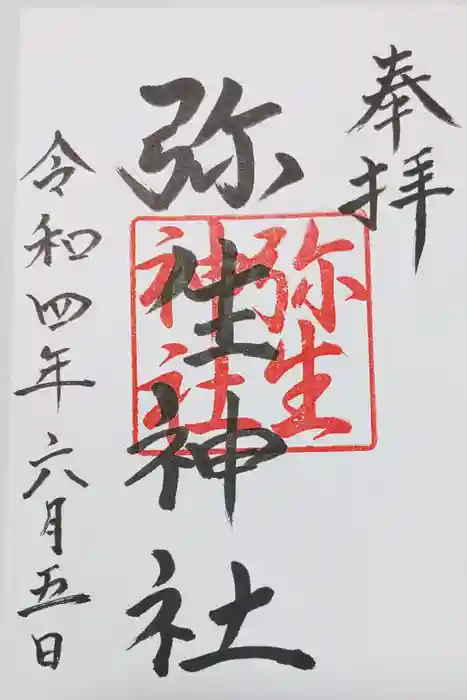 奉拝
弥生神社
弥生
神社
令和四年六月五日